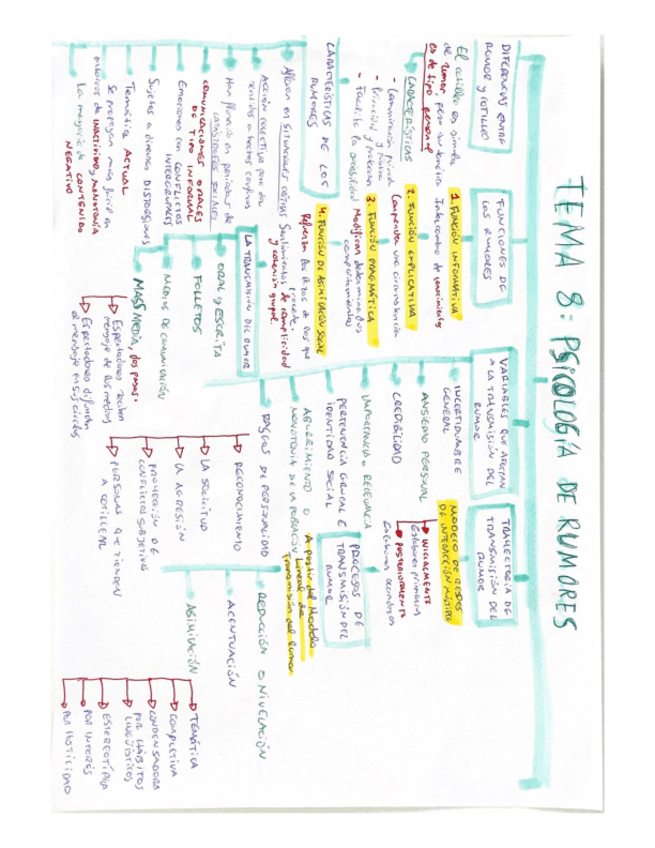 TEMA 8: PSICOLOGÍA DE RUMORES
DIFERENCIAS ENTRE
RUMOR Y COTILLEO
El cotilleo es similar
al rumor pero su temática
es de tipo personal
CARACTERÍSTICAS
- Comunicación privada
- Privacidad y protección
- Facilita la sociabilidad
CARACTERÍSTICAS DE LOS
RUMORES
Afloran en SITUACIONES CRÍTICAS
ACCIÓN COLECTIVA para dar
sentido a hechos confusos
Han florecido en periodos de
CATÁSTROFES SOCIALES
COMUNICACIONES ORALES
DE TIPO INFORMAL
Emociones con CONFLICTOS
INTERGRUPALES
Sujetos a diversas DISTORSIONES
Temática ACTUAL
Se propagan más fácil en
entornos de INACTIVIDAD y MONOTONÍA
La mayoría de CONTENIDO
NEGATIVO
FUNCIONES DE
LOS RUMORES
1. FUNCIÓN INFORMATIVA
Intercambio de conocimientos
2. FUNCIÓN EXPLICATIVA
Comprender una circunstancia
3. FUNCIÓN PRAGMÁTICA
Modifican determinados
comportamientos
4. FUNCIÓN DE ASIMILACIÓN SOCIAL
Refuerza los lazos de los que
Sentimientos de complicidad
y cohesión grupal
LA TRANSMISIÓN DEL RUMOR
ORAL y ESCRITA
FOLLETOS
MEDIOS DE COMUNICACIÓN
MASS MEDIA, dos pasos:
Espectadores reciben
mensaje de los medios
Espectadores difunden
el mensaje en sus círculos
VARIABLES QUE AFECTAN
A LA TRANSMISIÓN DEL
RUMOR
INCERTIDUMBRE
GENERAL
ANSIEDAD PERSONAL
CREDIBILIDAD
IMPORTANCIA o RELEVANCIA
PERTENENCIA GRUPAL E
IDENTIDAD SOCIAL
ABURRIMIENTO O
MONOTONÍA DE LA POBLACIÓN
RASGOS DE PERSONALIDAD
RECONOCIMIENTO
LA SOLICITUD
LA AGRESIÓN
PROYECCIÓN DE
CONFLICTOS SUBJETIVOS
PERSONAS QUE TIENDEN
A COTILLEAR
TRAYECTORIA DE
TRANSMISIÓN DEL
RUMOR
MODELO DE REDES
DE INTERACCIÓN MÚLTIPLE
INICIALMENTE
Eslabones primarios
POSTERIORMENTE
Eslabones secundarios
PROCESOS DE
TRANSMISIÓN DEL
RUMOR
A partir del Modelo
Lineal de
Transmisión del Rumor
REDUCCIÓN O NIVELACIÓN
ACENTUACIÓN
ASIMILACIÓN
TEMÁTICA
COMPLETIVA
CONDENSADORA
POR HÁBITOS
LINGÜÍSTICOS
ESTEREOTÍPICA
POR INTERÉS
POR HOSTILIDAD